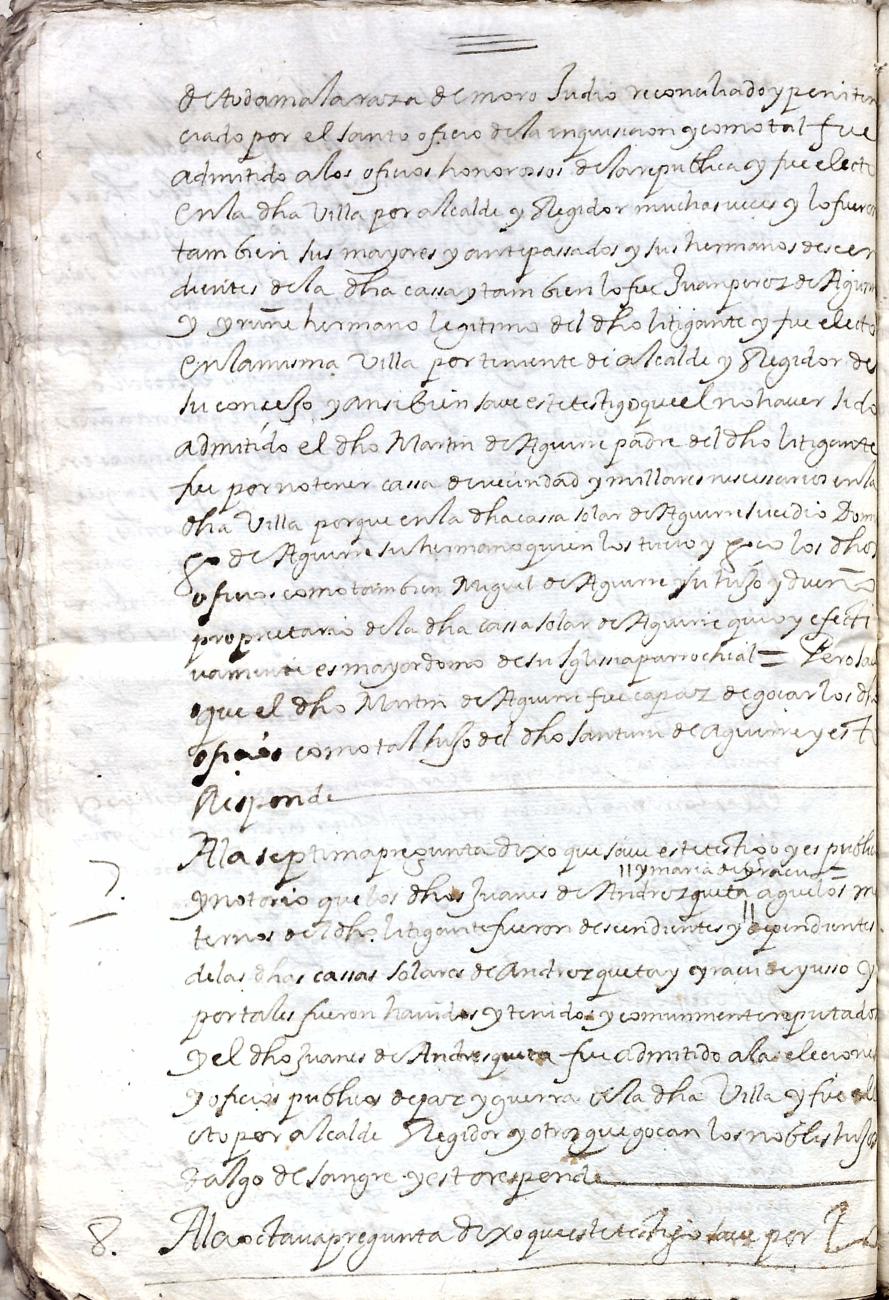 de toda mala raza de moro Judio reconciliado y peniten
ciado por el santo oficio de la inquisicion y como tal fue
admitido a los oficios honorosos de la republica y fue electo
en la dha Villa por alcalde y Regidor muchas veces y lo fueron
tambien sus mayores y antepassados y sus hermanos descen
dientes de la dha cassa y tambien lo fue Juan perez de Aguirre
y hermano legitimo del dho litigante y fue electo
en la misma Villa por teniente de alcalde y Regidor de
su conzejo y ansi bien save este testigo que el no haver sido
admitido el dho Martin de Aguirre padre del dho litigante
fue por no tener cassa de vecindad y millares nescessarios en la
dha Villa porque en la dha cassa solar de Aguirre sucedio Domi
go de Aguirre su hermano quien los tuvo y goço los dhos
oficios como tambien Miguel de Aguirre su hijo y dueño
proprietario de la dha cassa solar de Aguirre que oy efecti
vamente es mayordomo de su Iglesia parrochial = Pero save
que el dho Martin de Aguirre fue capaz de goçar los dhos
oficios como tal hijo del dho Santuru de aguirre y esto
Responde
7. A la septima pregunta dixo que save este testigo y es publico
y maria de
y notorio que los dhos Juanes de Andrezqueta aguelos ma
ternos del dho litigante fueron descendientes y dependientes
de las dhas cassas solares de Andrezqueta y eyraci de yusso y
por tales fueron havidos y tenidos y comunmente reputados
y el dho Juanes de Andresqueta fue admitido a las eleciones
y oficios publicos de paz y guerra de la dha Villa y fue ele
cto por alcalde Regidor y otros que gocan los nobles hijos
dalgo de sangre y esto responde
8. A la octava pregunta dixo que este testigo save por